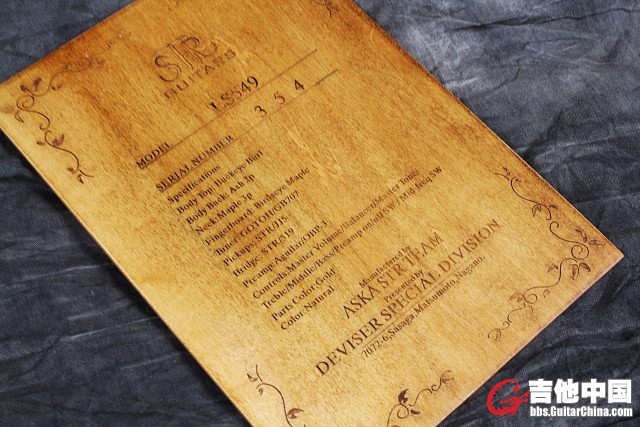 STR
GUITARS
MODEL LS549
SERIAL NUMBER 354
Specifications
Body Top: Buckeye Burl
Body Back: Ash 2p
Neck: Maple 3p
Fingerboard: Birdseye Maple
Tuner: GOTOH/GB707
Pickups: STR/JJ5
Bridge: STR/519
Preamp: Aguilar/OBP-3
Controls:Master Volume/Balancer/Master Tone/
Treble/Middle/Bass/Preamp on/off SW / Mid-freq SW
Parts Color: Gold
Color: Natural
Manufactured by
ASKA STR TEAM
Presented by
DEVISER SPECIAL DIVISION
7072-6,Sasaga, Matsumoto, Nagano,
吉他中国
bbs.GuitarChina.com